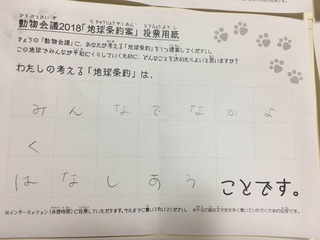 動物会議2018「地球条約案」投票用紙
きょうの「動物会議」に、あなたが考える「地球条約」を1つ提案してください。
この地球でみんなが平和にくらしていくために、どんなことを決めたらよいと思いますか？
わたしの考える「地球条約」は、
みんなでなかよ
く
はなしあう ことです。